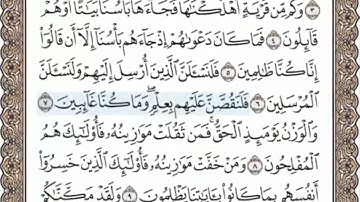 وَكَم مِّن قَرْيَةٍ أَهْلَكْنَٰهَا فَجَآءَهَا بَأْسُنَا بَيَٰتًا أَوْ هُمْ
قَآئِلُونَ ٤ فَمَا كَانَ دَعْوَىٰهُمْ إِذْ جَآءَهُم بَأْسُنَآ إِلَّآ أَن قَالُوٓا۟
إِنَّا كُنَّا ظَٰلِمِينَ ٥ فَلَنَسْـَٔلَنَّ ٱلَّذِينَ أُرْسِلَ إِلَيْهِمْ وَلَنَسْـَٔلَنَّ
ٱلْمُرْسَلِينَ ٦ فَلَنَقُصَّنَّ عَلَيْهِم بِعِلْمٍ وَمَا كُنَّا غَآئِبِينَ ٧
وَٱلْوَزْنُ يَوْمَئِذٍ ٱلْحَقُّ فَمَن ثَقُلَتْ مَوَٰزِينُهُۥ فَأُو۟لَٰٓئِكَ هُمُ
ٱلْمُفْلِحُونَ ٨ وَمَنْ خَفَّتْ مَوَٰزِينُهُۥ فَأُو۟لَٰٓئِكَ ٱلَّذِينَ خَسِرُوٓا۟
أَنفُسَهُم بِمَا كَانُوا۟ بِـَٔايَٰتِنَا يَظْلِمُونَ ٩ وَلَقَدْ مَكَّنَّٰكُمْ